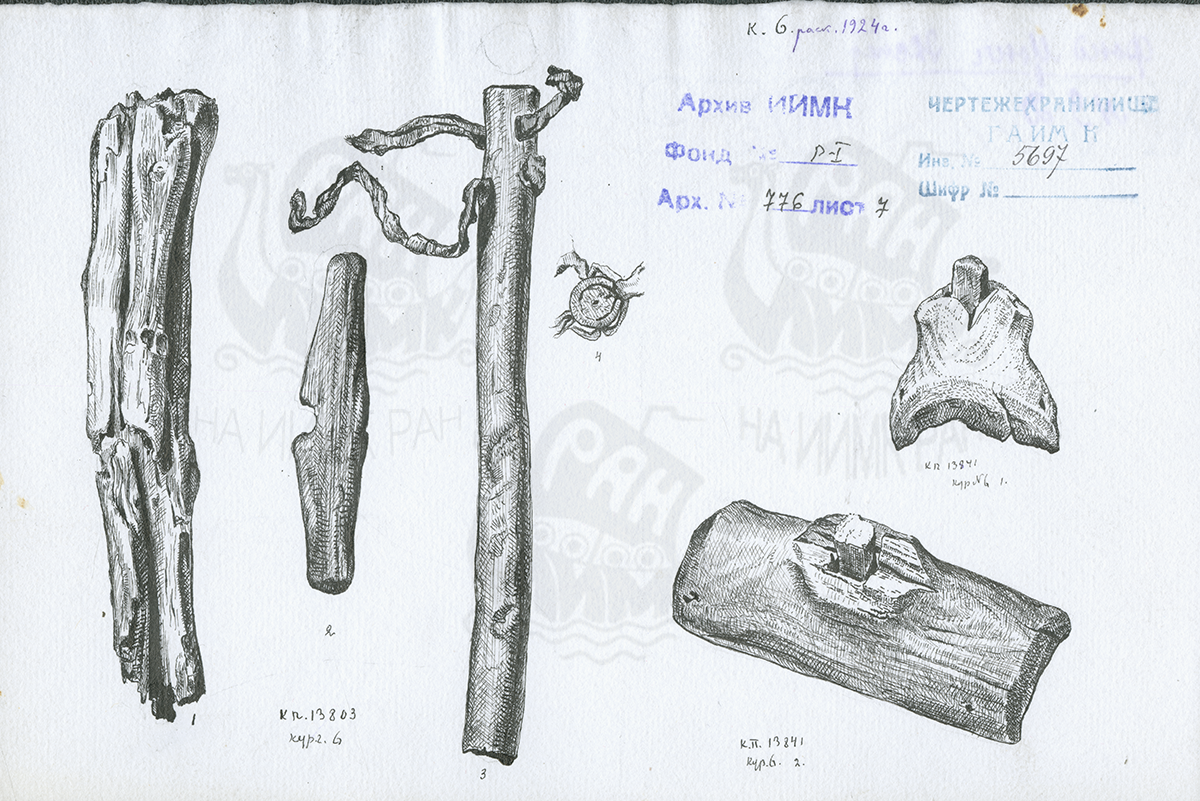 к. 6. раск. 1924 г.
Архив ИИМК
Фонд № Р-I
Арх. № 776 лист 7
ЧЕРТЕЖЕХРАНИЛИЩЕ
ГАИМК
Инв. № 5697
Шифр №
4
кп 13841
кур №6 1.
2
1
кп. 13803
кург. 6
3
к.п. 13841
кур. 6. 2.
РАН
ИИМК
НА ИИМК РАН
РАН
ИИМК
НА ИИМК РАН
РАН
ИИМК